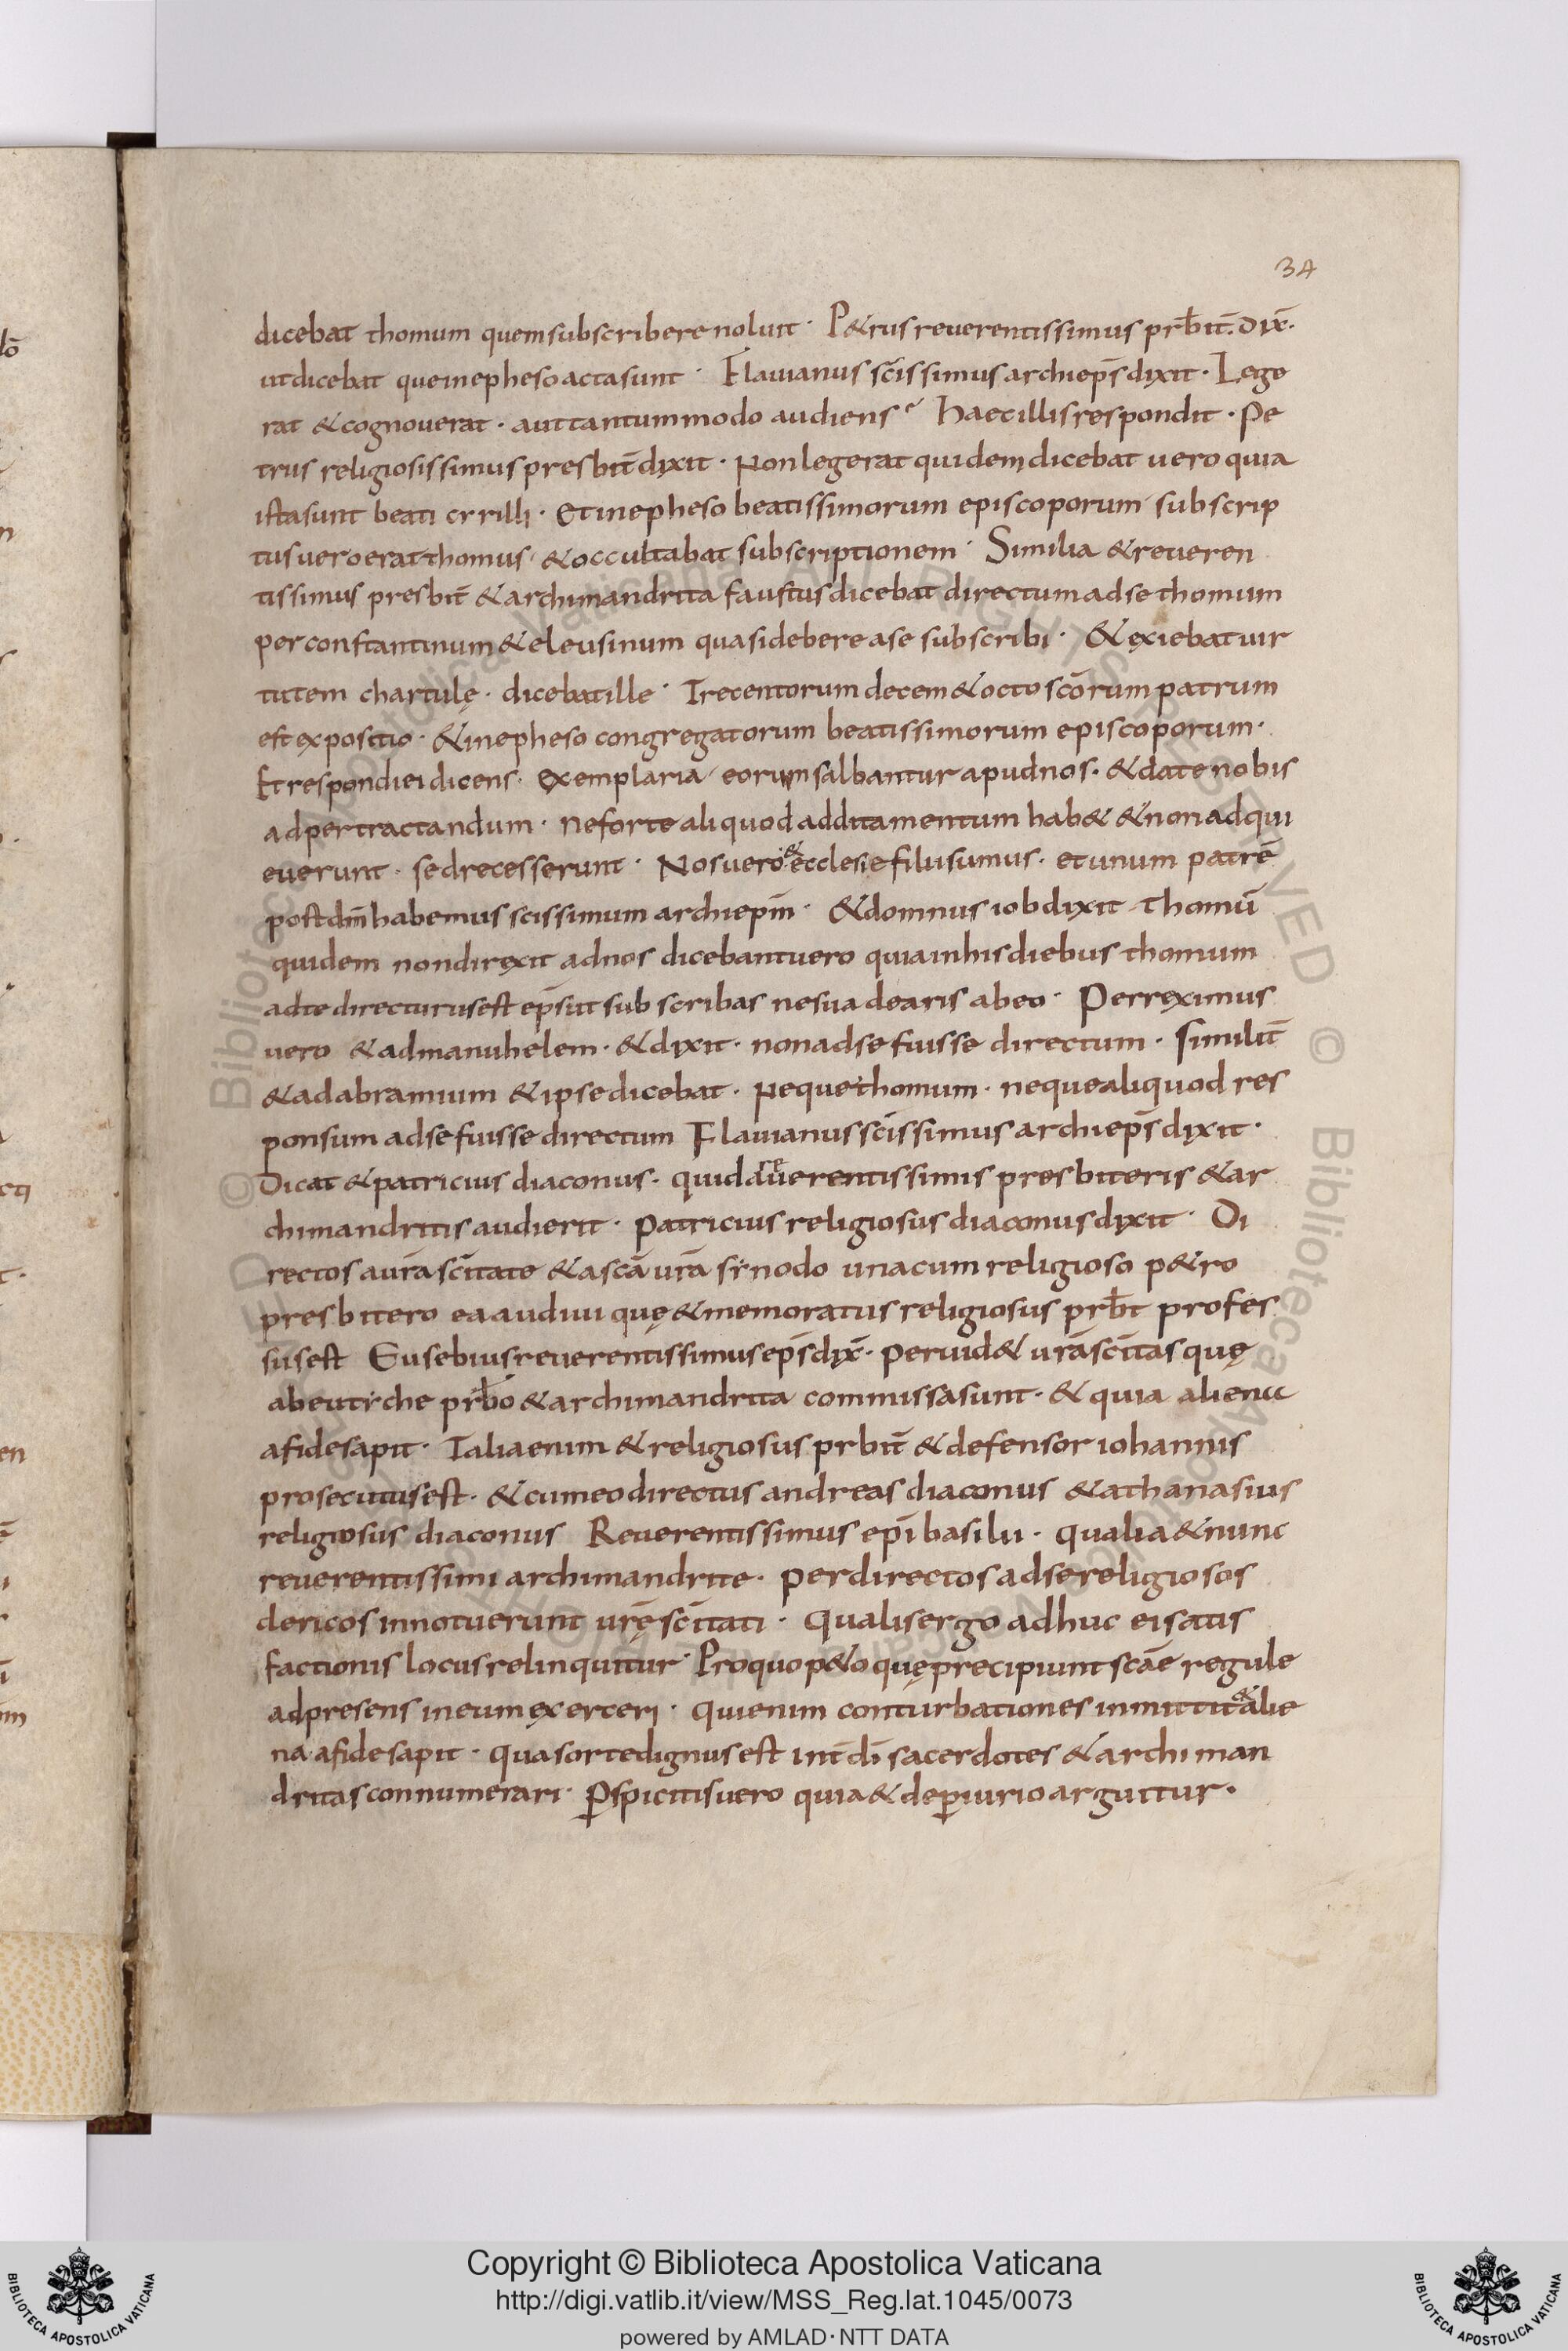 34
dicebat thomum quem subscribere noluit · P&rus reuerentissimus prb̄it̄. dix̄·
ut dicebat que in epheso acta sunt · Flauianus sc̄issimus archiep̄s dixit · Lege
rat & cognouerat · aut tantummodo audiens haec illis respondit · Pe
trus religiosissimus presbit̄ dixit · Non legerat quidem dicebat uero quia
ista sunt beati cyrilli · Et in epheso beatissimorum episcoporum subscrip
tus uero erat thomus · & occultabat subscriptionem · Similia & reueren
tissimus presbit̄ & archimandrita faustus dicebat directum ad se thomum
per constantinum & eleusinum quasi debere a se subscribi · & exiebat uir
tutem chartulę · dicebat ille · Trecentorum decem & octo sc̄orum patrum
est expositio · & in epheso congregatorum beatissimorum episcoporum ·
Et respondi ei dicens · Exemplaria eorum salbantur apud nos · & date nobis
ad pertractandum · Ne forte aliquod additamentum hab& & non adqui
euerunt · sed recesserunt · Nos uero & ecclesie filii sumus · et unum patrē
post dn̄m habemus scissimum archiepm̄ · & domnus iob dixit · Thomū
quidem non direxit ad nos dicebant uero quia in his diebus thomum
ad te directurus est ep̄s ut subscribas ne suadearis ab eo · Perreximus
uero & ad manuhelem · & dixit · non ad se fuisse directum · similit̄
& ad abramium & ipse dicebat · Neque thomum · neque aliquod res
ponsum ad se fuisse directum Flauianus sc̄issimus archiep̄s dixit ·
Dicat & patricius diaconus · quid a reuerentissimis presbiteris & ar
chimandritis audierit · Patricius religiosus diaconus dixit · Di
rectos a ur̄a sc̄itate & a scā ur̄a synodo una cum religioso p&ro
presbitero ea audiui quę & memoratus religiosus prb̄t profes
sus est Eusebius reuerentissimus ep̄s dix̄ · Peruid& ur̄a sc̄itas quę
ab eutiche prb̄o & archimandrita commissa sunt · & quia aliena
a fide sapit · Talia enim & religiosus prbit̄ & defensor iohannis
prosecutus est · & cum eo directus andreas diaconus & athanasius
religiosus diaconus Reuerentissimus ep̄i basilii · qualia & nunc
reuerentissimi archimandrite · per directos ad se religiosos
clericos innotuerunt ur̄ę sc̄itati · Qualis ergo adhuc ei satis
factionis locus relinquitur · Pro quo p&o quę precipiunt scāe regule
ad presens in eum exerceri · Qui enim conturbationes inmittit & alie
na a fide sapit · qua sorte dignus est int̄ dī sacerdotes & archiman
dritas connumerari · P̱spicitis uero quia & de p̱iurio arguitur ·
Copyright © Biblioteca Apostolica Vaticana
http://digi.vatlib.it/view/MSS_Reg.lat.1045/0073
powered by AMLAD·NTT DATA